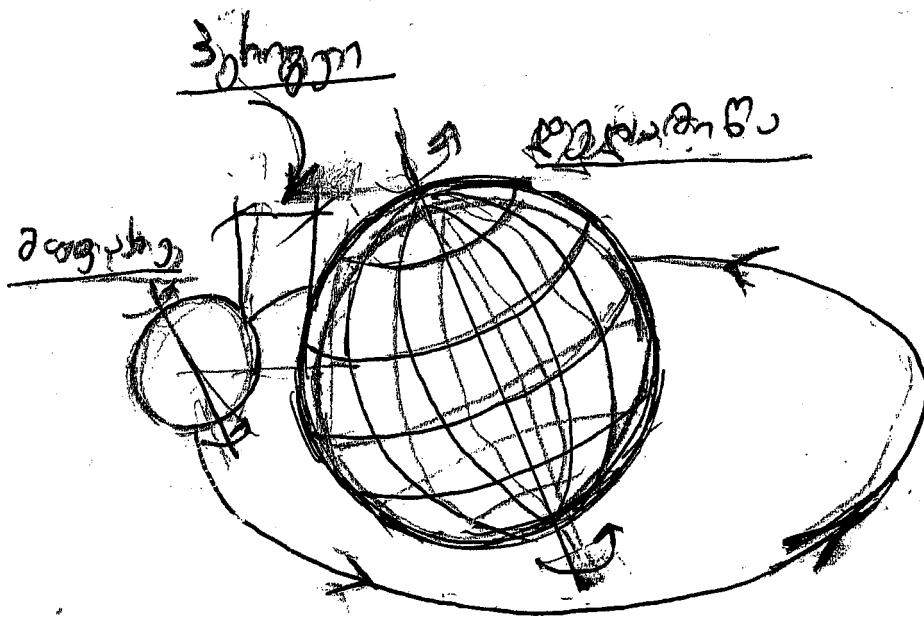 პერიგეი
დედამიწა
მთვარე